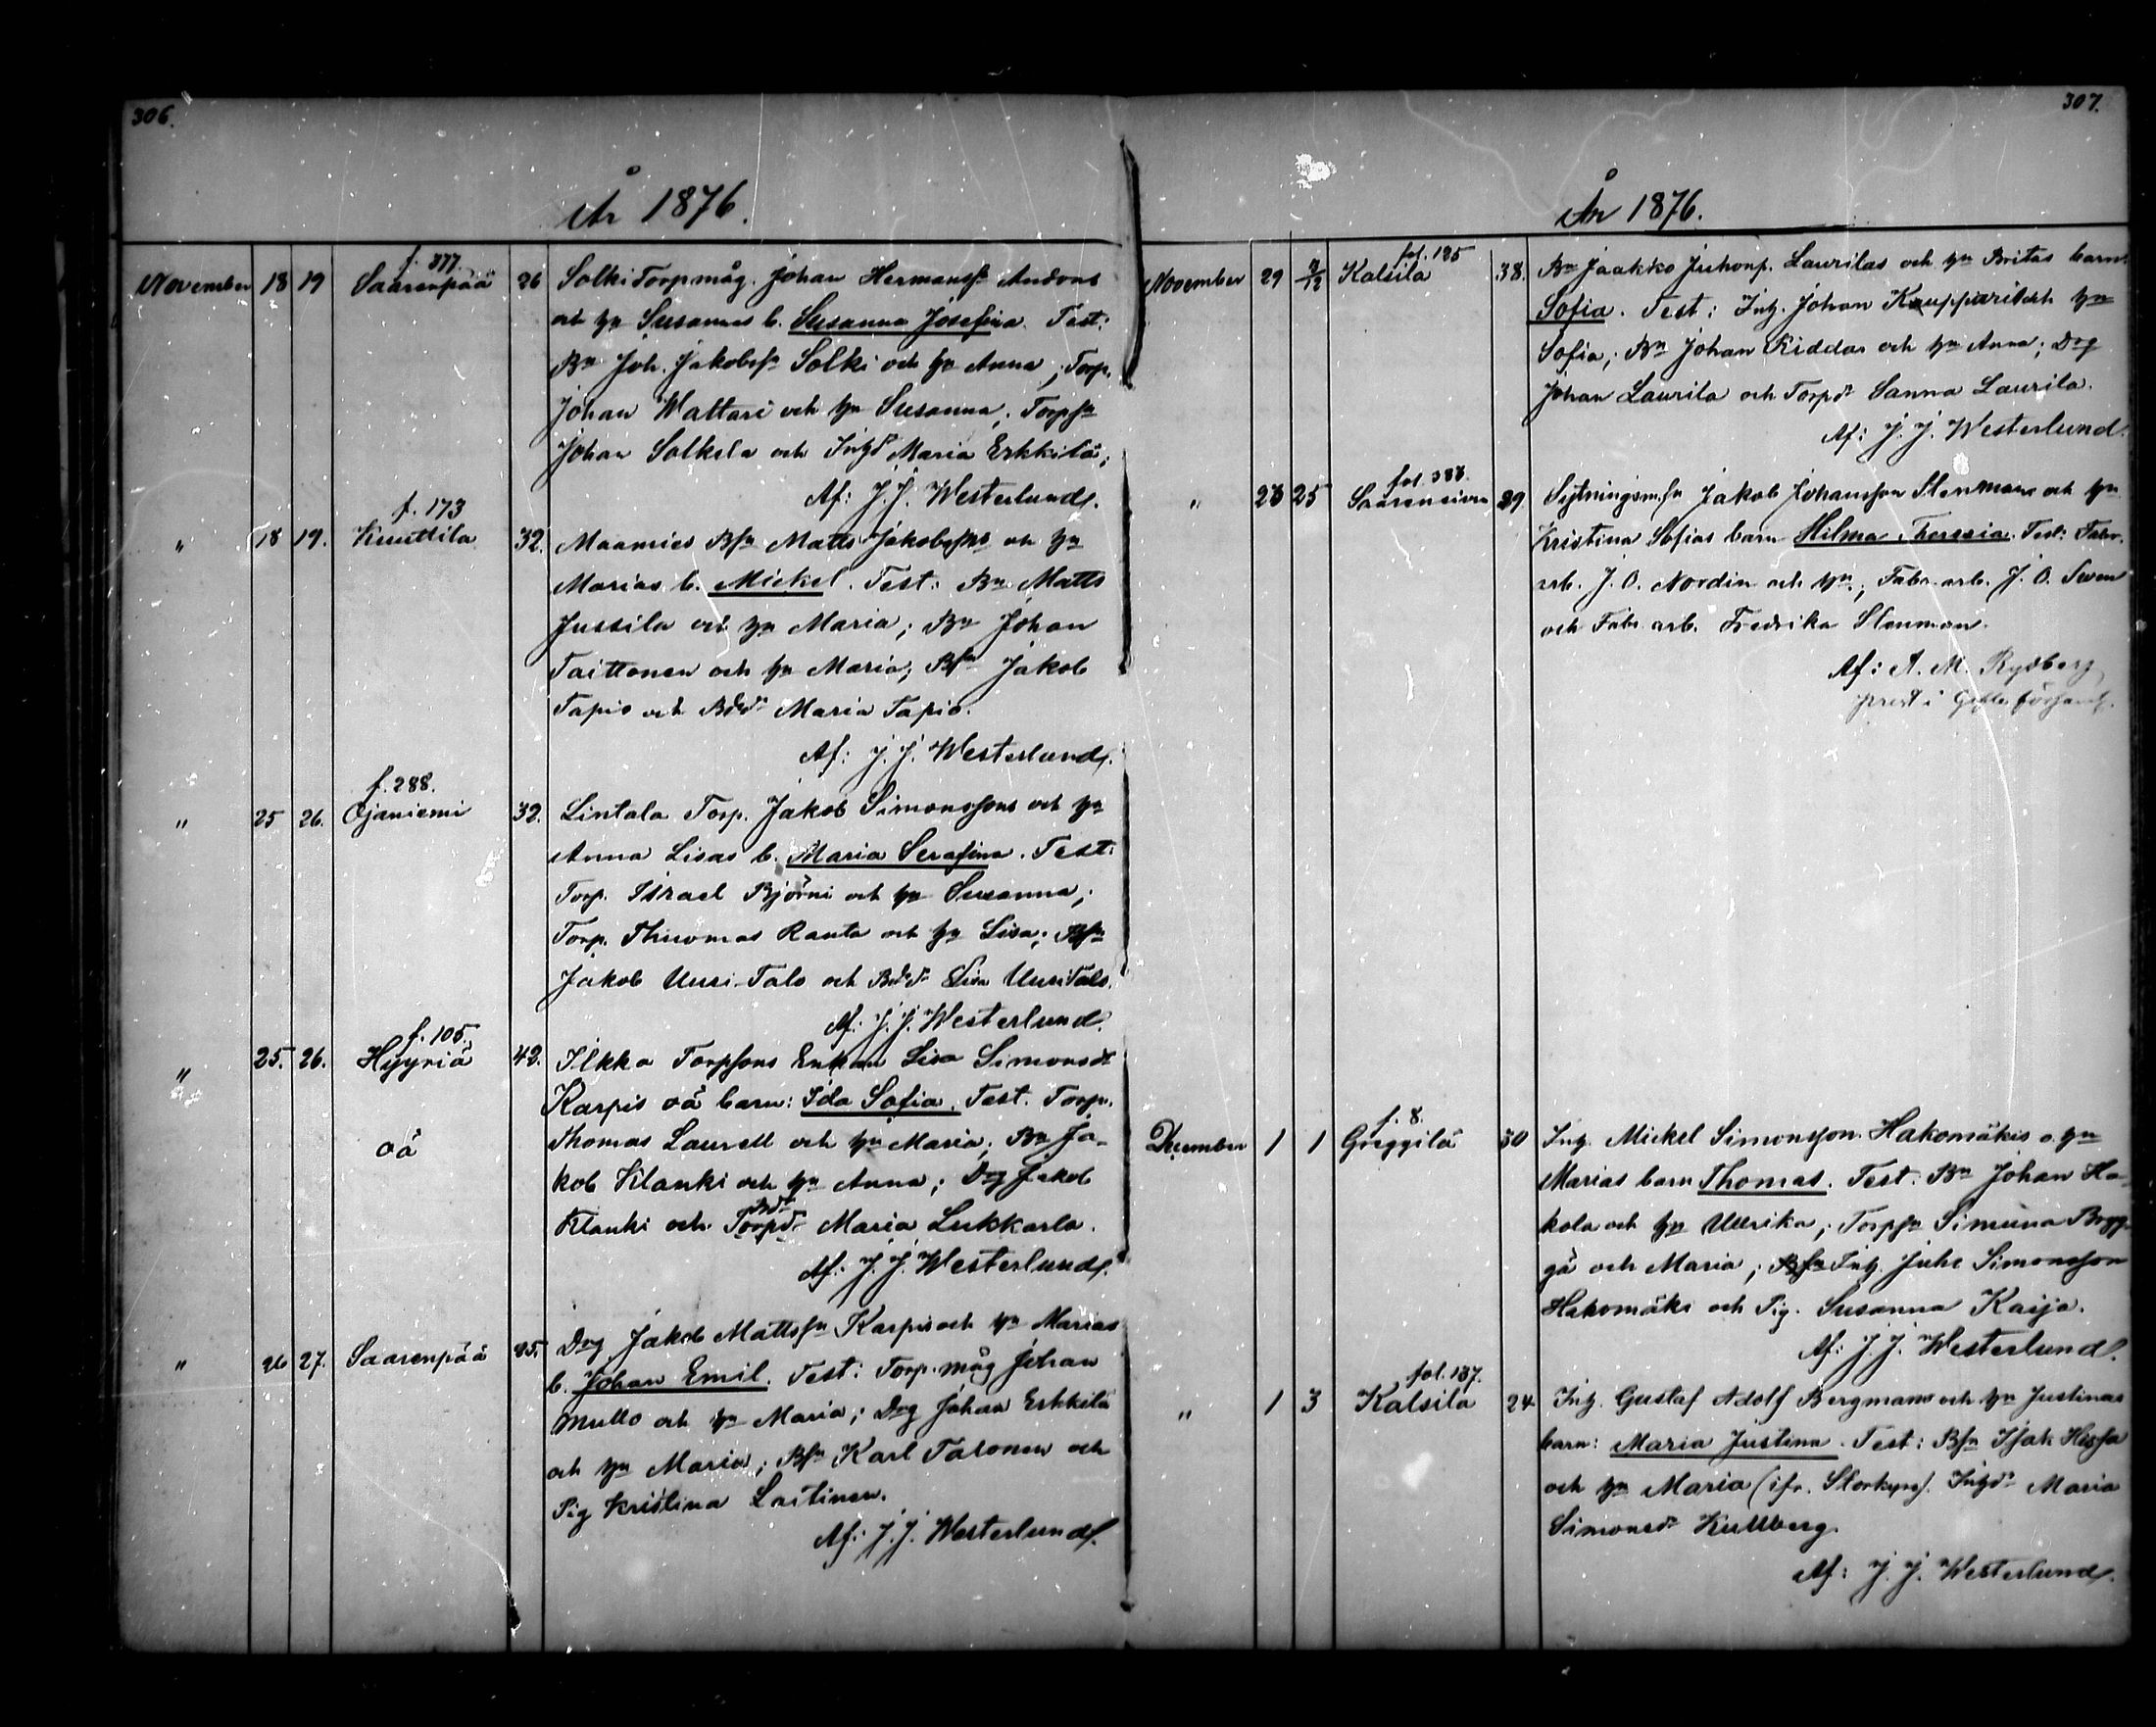 306.
År 1876.
November 18 19 f. 377. Saarenpää 26 Solki Torpmåg. Johan Hermanss
och hu Susannas b. Susanna Josefina. Test:
Bn Joh. Jakobss Solki och hu Anna; Torp.
Johan Wattari och hu Susanna; Torps
Johan Solkela och Inhd Maria Erkkilä;
Af: J. J. Westerlund.
" 18 19. f. 173 Knuttila 32. Maamies Bs Matts Jakobss och hu
Marias b. Mickel. Test: Bn Matts
Jussila och hu Maria; Bn Johan
Taittonen och hu Maria; Bs Jakob
Tapio och Bdr Maria Tapio.
Af: J. J. Westerlund.
" 25 26. f. 288. Ojaniemi 32. Lintala Torp. Jakob Simonssons och hu
Anna Lisas b. Maria Serafina. Test:
Torp. Israel Björni och hu Susanna;
Torp. Thuomas Ranta och hu Lisa; Bs
Jakob Uusi-Talo och Bdr Lisa Uusitalo.
Af: J. J. Westerlund.
" 25. 26. f. 105. Hyyriä 42. Ilkka Torpsons Enkan Lisa Simonsdr
Karpis oä barn: Ida Sofia. Test. Torp.
oä Thomas Laurell och hu Maria; Bn Ja-
kob Klanki och hu Anna; Drg Jakob
Klanki och Torpdr Bdr Maria Lukkarla.
Af: J. J. Westerlund.
" 26 27. Saarenpää 25. Drg Jakob Mattss Karpis och hu Marias
b. Johan Emil. Test: Torp. måg Johan
Mullo och hu Maria; Drg Johan Erkkilä
och hu Maria; Bs Karl Talonen och
Pig Kristina Laitinen.
Af: J. J. Westerlund.
307.
År 1876.
November 29 3/12 fol. 125 Kalsila 38. Bn Jaakko Juhonp. Laurilas och hu Britas barn
Sofia. Test: Inh. Johan och hu
Sofia; Bn Johan Riddar och hu Anna; Drg
Johan Laurila och Torpdr Sanna Laurila.
Af: J. J. Westerlund.
" 23 25 fol. 388. 29. Sytningsm.s Jakob Johansson Stenmans och hu
Kristina Sofias barn Hilma Theresia. Test: Fabr.
arb. J. O. Nordin och hu; Fabr. arb. J. O. Swen
och Fabr. arb. Fredrika Stenman.
Af: A. M. Rydberg
prest i Gefle församl.
December 1 1 f. 8. Greggilä 30 Inh. Mickel Simonsson Hakomäkis o. hu
Marias barn Thomas. Test: Bn Johan Ha-
kola och hu Ullrika; Torps Simuna Brygg-
gä och Maria; Inh. Juho Simonsson
Hakomäki och Pig. Susanna Kaija.
Af: J. J. Westerlund.
" 1 3 fol. 137. Kalsila 24 Inh. Gustaf Adolf Bergmans och hu Justinas
barn: Maria Justina. Test: Bs Isak Hissa
och hu Maria (ifr. Storkyro). Inhdr Maria
Simonsdr Kullberg.
Af: J. J. Westerlund.